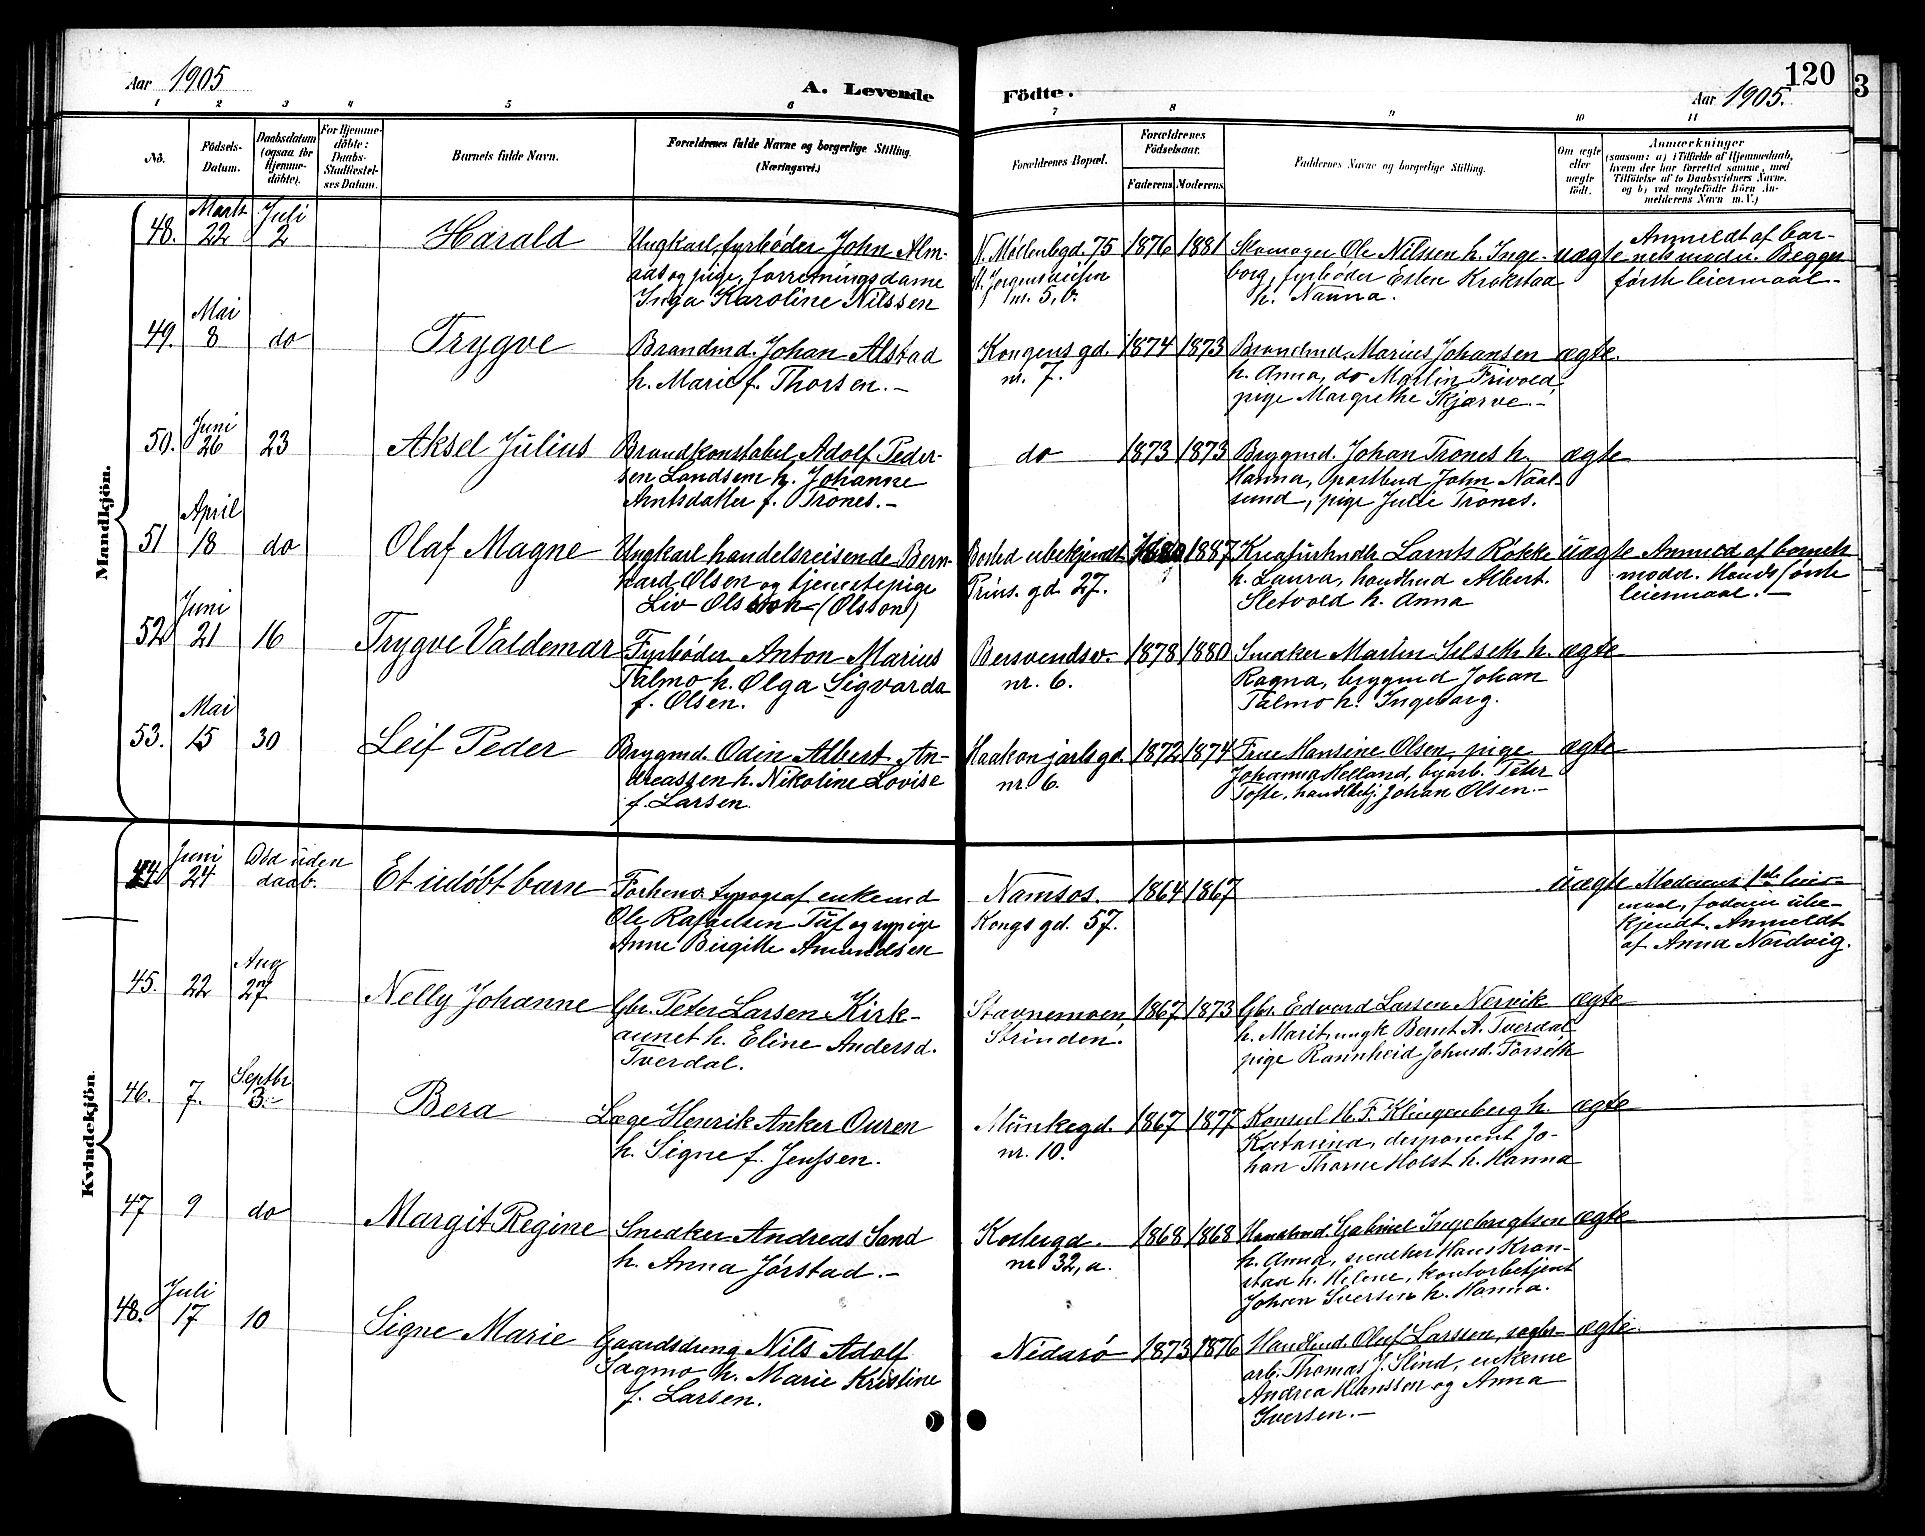 Aar 1905
A. Levende
Födte.
120
Aar 1905.
3
1 2 3 4 5 6 7 8 9 10 11
No.
Födsels-
Datum.
Daabsdatum
(ogsaa for
Hjemme-
döbte).
For Hjemme-
döbte:
Daabs-
Stadfæstel-
ses Datum.
Barnets fulde Navn.
Forældrenes fulde Navne og borgerlige Stilling.
(Næringsvei.)
Forældrenes Bopæl.
Forældrenes
Födselsaar.
Faderens Moderens
Faddernes Navne og borgerlige Stilling.
Om ægte
eller
uægte
født.
Anmærkninger
(saasom: a) i Tilfælde af Hjemmedaab,
hvem der har forrettet samme, med
Tilföielse af to Daabsvidners Navne,
og b) ved uægtefödte Börn An-
melderens Navn m. V.)
Mandkjön.
48.
Marts
22
Juli
2
Harald
Ungkarl, fyrbøder John Alm-
aas og pige, forretningsdame
Inga Karoline Nilssen
N. Møllenbgd. 75
St. Jørgensveiten
nr. 5, b.
1876
1881
Skomager Ole Nilssen h. Inge-
borg, fyrbøder Esten Krokstad
h. Nanna.
uægte
Anmeldt af bar-
nets moder. Begges
første leiermaal.
49.
Mai
8
do
Trygve
Brandmd. Johan Alstad
h. Marie f. Thorsen.-
Kongens gd.
nr. 7.
1874
1873
Brandmd. Marius Johansen
h. Anna, do Martin Frivold,
pige Margrethe Skjærve.-
ægte.
50.
Juni
26
23
Aksel Julius
Brandkonstabel Adolf Peder-
sen Landsem h. Johanne
Arntsdatter f. Trones.-
do
1873
1873
Brygmd. Johan Trones h.
Hanna, postbud John Naal-
sund, pige Julie Trones.
ægte
51
April
18
do
Olaf Magne
Ungkarl handelsreisende Bern-
hard Olsen og tjenestepige
Liv Olsson (Olsson)
Bosted ubekjendt
Prins. gd. 27.
1887
h. Laura, handlbud Albert
Sletvold h. Anna
uægte
Anmeld af barnets
moder. Hendes første
leiermaal.-
52
Juni
21
16
Trygve Valdemar
Fyrbøder Anton Marius
Talmo h. Olga Sigvarda
f. Olsen.
Bersvendsv.
nr. 6.
1878
1880
Snedker Martin Selseth h.
Ragna, brygmd Johan
Talmo h. Ingeborg.
ægte
53.
Mai
15
30
Leif Peder
Brygmd. Odin Albert An-
dreassen h. Nikoline Lovise
f. Larsen.
Haakon jarls gd.
nr. 6.
1872
1874
Frue Hansine Olsen, pige
Johanna Helland, byarb. Peter
Tofte, handlbetj. Johan Olsen.-
ægte
Kvindekjön.
44.
Juni
24
Død uden
daab.
Et udøbt barn
Forhenv. typograf enkemd
Ole Rafaelsen Tuf og sypige
Anne Birgitte Amundsen
Namsos.
Kongs gd. 57.
1864
1867
uægte
Moderens 1ste leier-
maal, faderen ube-
kjendt. Anmeldt
af Anna Nordvig.
45.
22
Aug
27
Nelly Johanne
Gbr. Peter Larsen Kirk-
aunet h. Eline Andersd.
Tverdal.
Stavnemoen,
Strinden.
1867
1873
Gbr. Edvard Larsen Nervik
h. Marit, ungk Bernt A. Tverdal
pige Rannheid Johnsd. Forseth
ægte
46.
7.
Septbr
3.-
Bera
Læge Henrik Anker Ouren
h. Signe f. Jenssen.
Munkegd.
nr. 10.
1867
1877
Konsul H. F. Klingenberg h.
Katarina, disponent Jo-
han Thorne Holst h. Hanna
ægte
47
9
do
Margit Regine
Snedker Andreas Sand
h. Anna Jørstad.-
Kosbergd.
nr 32, a.
1868
1868
Handlmd. Gabriel Ingebrigtsen
h. Anna, snedker Hans Kran-
stad h. Helene, kontorbetjent
Johan Iversen h. Hanna.
ægte
48.
Juli
17
10
Signe Marie
Gaardsdreng Nils Adolf
Sagmo h. Marie Kristine
f. Larsen.
Nidarø
1873
1876
Handlmd. Oluf Larsen, sagbr-
arb. Thomas J. Slind, enkerne
Andrea Hanssen og Anna
Iversen.-
ægte.